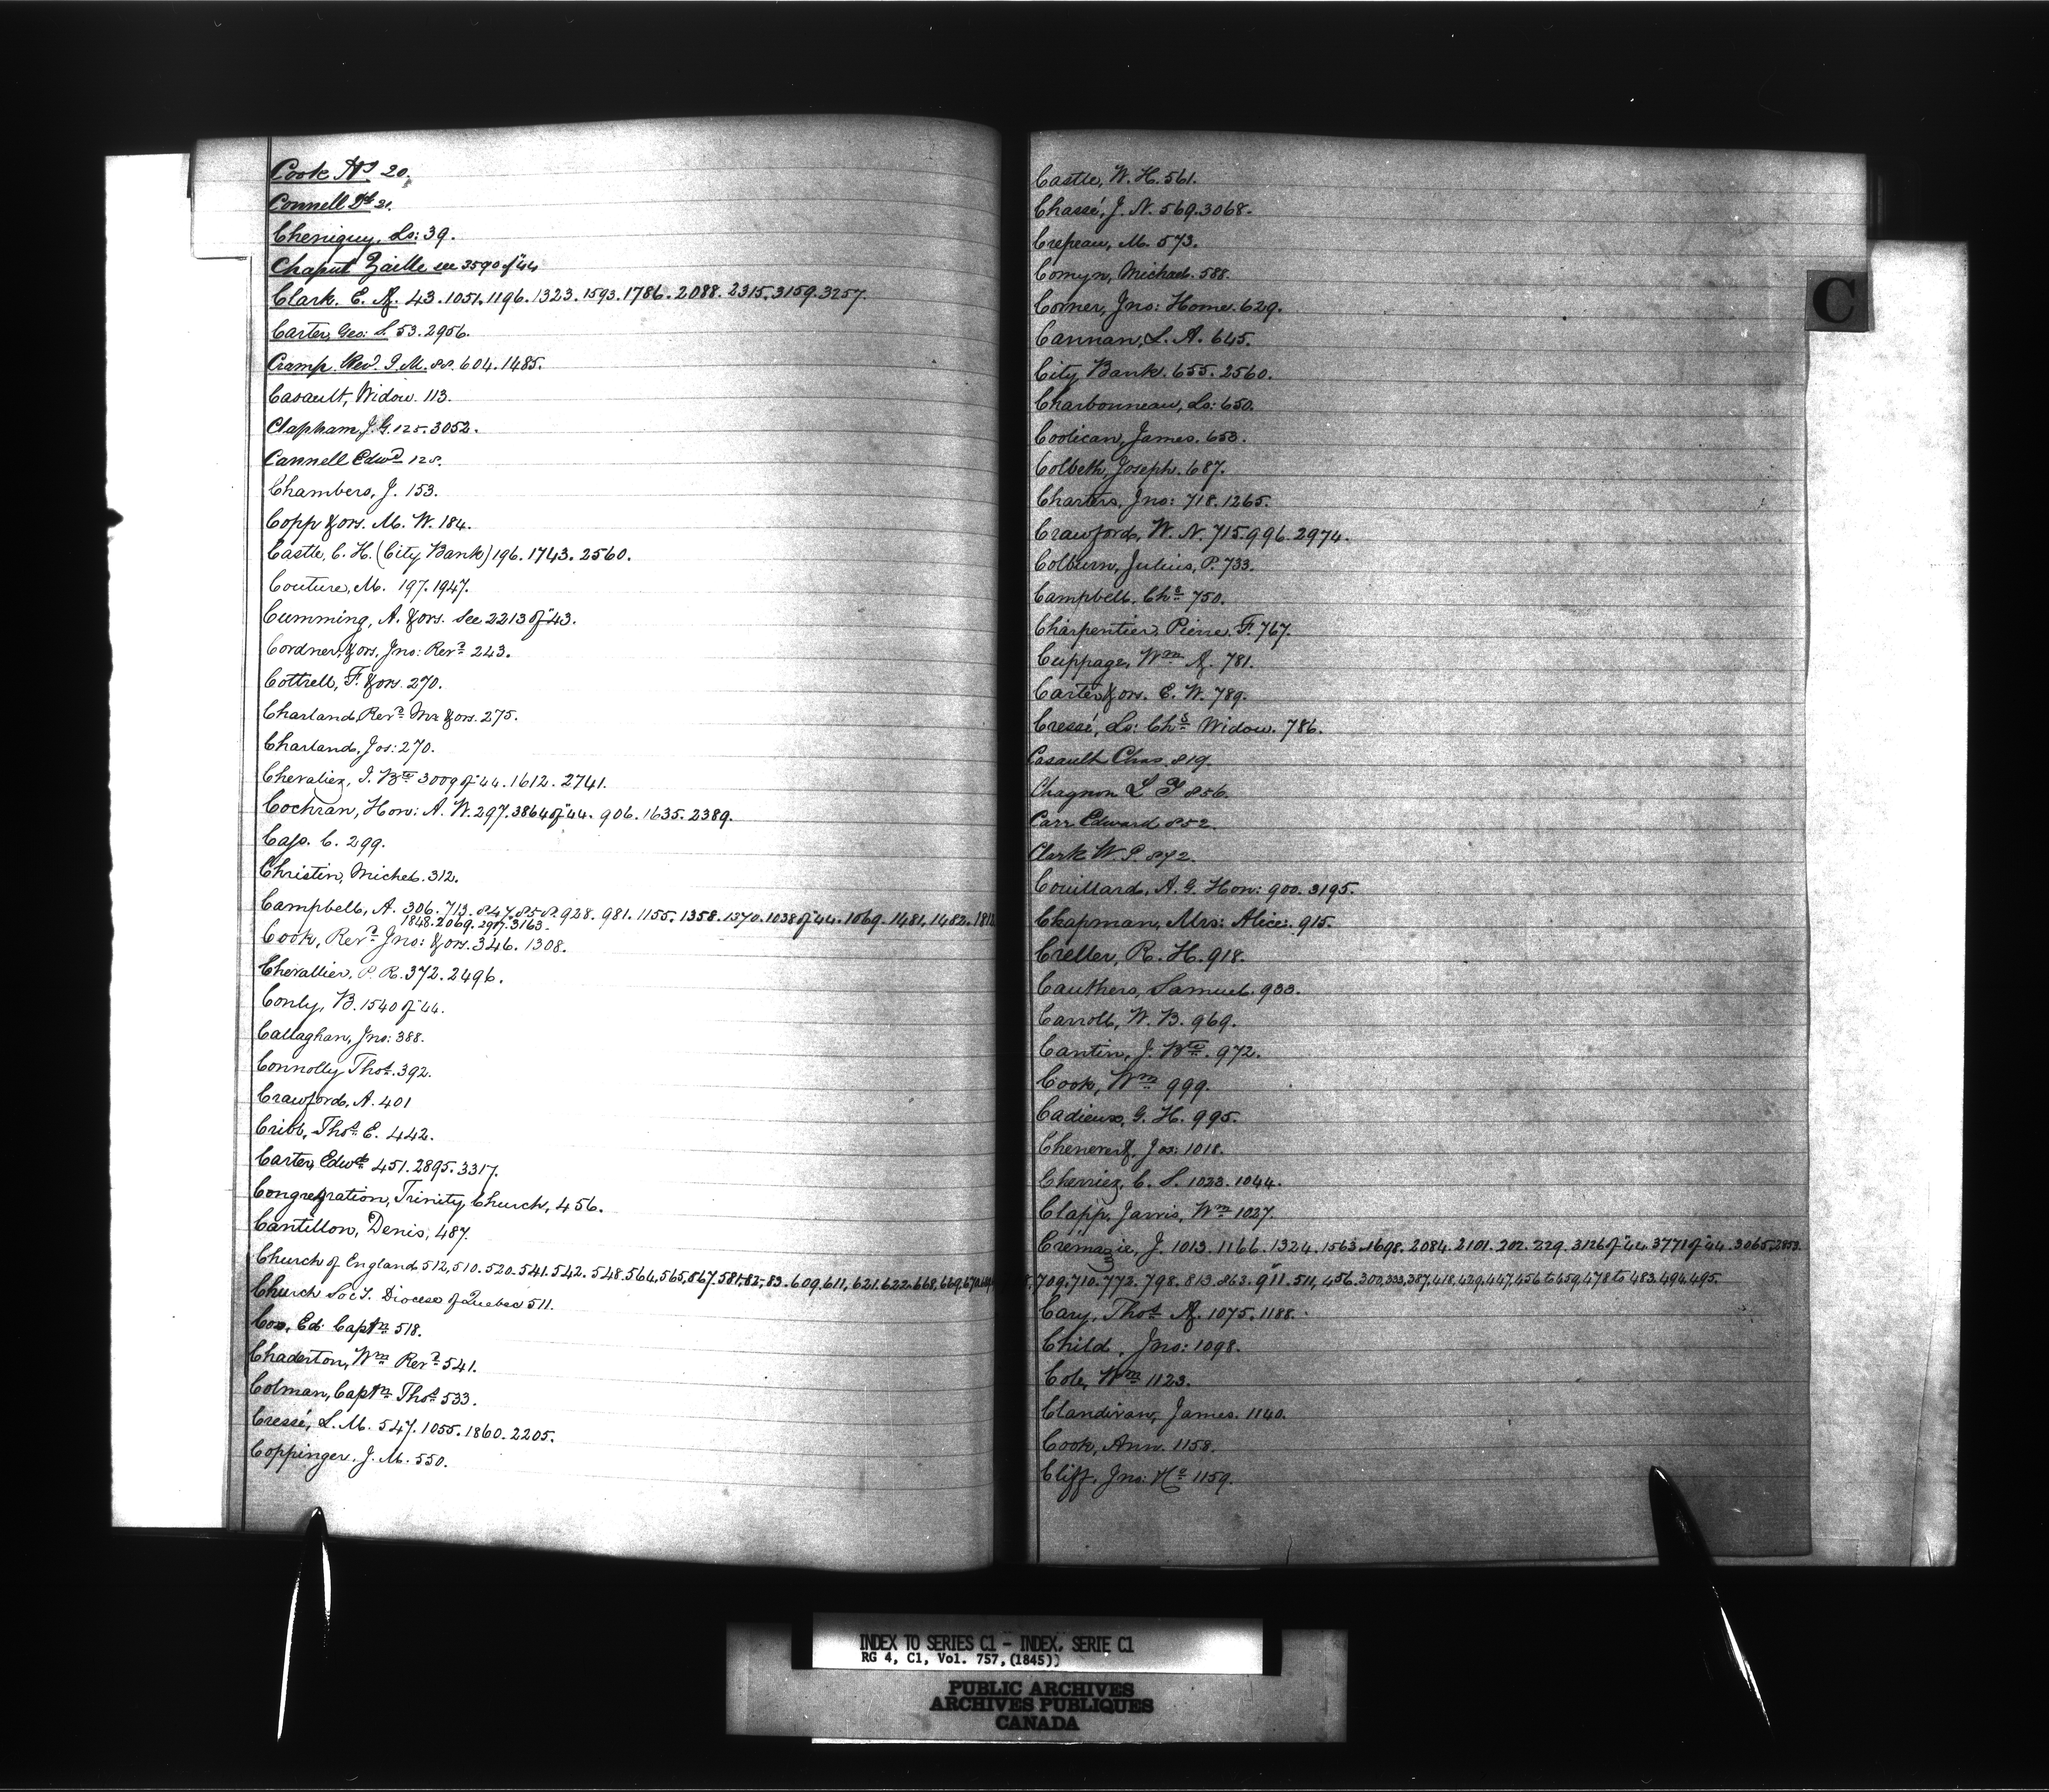 Cook Hy 20.
Connell Dd 21.
Cheniquy, Ls: 39.
Chaput Zaille see 3590 of "44
Clark. E. A. 43. 1051. 1196. 1323. 1593. 1786. 2088. 2315. 3159. 3257.
Carter, Geo: S. 53. 2956.
Cramp. Revd. J. M. 88. 604. 1485.
Casault, Widow. 113.
Clapham, J. G. 125. 3052.
Cannell Edwd 128.
Chambers, J. 153.
Copp & ors. M. W. 184.
Castle, C. H. (City Bank) 196. 1743. 2560.
Couture, M. 197. 1947.
Cumming, A. & ors. See 2213 of "43.
Cordner, & ors, Jno: Revd 243.
Cottrell, F. & ors. 270.
Charland, Revd Mr & ors. 275.
Charland, Jos: 270.
Chevalier, J. Bte 3009 of "44. 1612. 2741.
Cochran, Hon: A. W. 297. 3864 of "44. 906. 1635. 2389.
C. 299.
Christin, Michel. 312.
Campbell, A. 306. 713. 847. 858. 928. 981. 1155. 1358. 1370. 1038 of "44. 1069. 1481. 1482.
1848. 2069. 2917. 3163.
Cook, Revd Jno: & ors. 346. 1308.
Chevallier, P. R. 372. 2496.
Conly, B. 1540 of "44.
Callaghan, Jno: 388.
Connolly Thos. 392.
Crawford, A. 401
Cribb, Thos. E. 442.
Carter, Edwd 451. 2895. 3317.
Congregration, Trinity Church, 456.
Cantillon, Denis, 487.
Church of England 512, 510. 520. 541. 542. 548. 564, 565, 567. 581, 82, 83. 609. 611, 621. 622. 668, 669,
Church Socy. Diocese of Quebec 511.
Cox, Ed: Captn 518.
Chaderton, Wm Revd 541.
Colman, Captn Thos 533.
Cressé, L. M. 547. 1055. 1860. 2205.
Coppinger. J. M. 550.
Castle, W. H. 561.
Chassé, J. N. 569. 3068.
Crepeau, M. 573.
Comyn, Michael. 588.
Corner, Jno: Home. 629.
Cannan, L. A. 645.
City Bank. 655. 2560.
Charbonneau, Ls: 650.
Coolican, James. 653.
Colbeth, Joseph. 687.
Charters, Jno: 718. 1265.
Crawford, W. N. 715. 996. 2974.
Colburn, Julius, P. 733.
Campbell. Chs 750.
Charpentier, Pierre. F. 767.
Cuppage, Wm A. 781.
Carter & ors. E. W. 789.
Cressé, Ls: Chs Widow. 786.
Casault Chas. 819.
Chagnon L 856.
Carr Edward 852.
Clark W. P. 872.
Couillard, A. G. Hon: 900. 3195.
Chapman, Mrs: Alice. 915.
Creller, R. H. 918.
Cauthers, Samuel. 933.
Carroll, W. B. 969.
Cantin, J. Bte. 972.
Cook, Wm 999.
Cadieux, G. H. 995.
Chenevert, Jos: 1018.
Cherrier, C. S. 1023. 1044.
Clapp, Jarvis, Wm 1027.
Crémazie, J. 1013. 1166. 1324. 1563. 1698. 2084. 2101. 202. 229. 3126 of "44. 3771 of "44. 3065. 2853.
709. 710. 772. 798. 813. 863. 911. 511, 456. 300, 333, 387, 418, 429, 447, 456 to 459, 478 to 483. 494. 495.
Cary, Thos A. 1075. 1188.
Child, Jno: 1098.
Cole, Wm 1123.
Clandivan, James. 1140.
Cook, Ann. 1158.
Cliff, Jno: Hy 1159.
C
INDEX TO SERIES C1 - INDEX, SERIE C1
RG 4, C1, Vol. 757, (1845))
PUBLIC ARCHIVES
ARCHIVES PUBLIQUES
CANADA